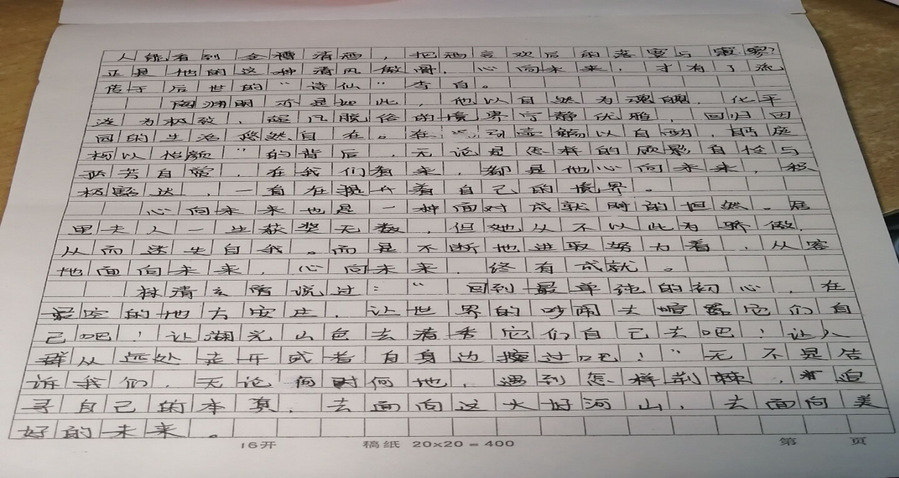 人能看到金樽清酒，把酒言欢后的落寞与寂寥？
正是他的这种清风傲骨，心向未来，才有了流
传于后世的“诗仙”李白。
陶渊明亦是如此，他以自然为魂魄，化平
淡为极致，超凡脱俗的境界宁静优雅，回归田
园的生活悠然自在。在觞以自酌，眄庭
柯以怡颜”的背后，无论是怎样的顾影自怜与
孤芳自赏，在我们看来，都是他心向未来，积
极豁达，一直在提升着自己的境界。
心向未来也是一种面对成就时的坦然。居
里夫人一生获奖无数，但她从不以此为骄傲，
从而迷失自我。而是不断地进取努力着，从容
地面向未来，心向未来，终有成就。
林清玄曾说过：“回到最单纯的初心，在
最空的地方安庄，让世界的吵闹去喧嚣它们自
己吧！让湖光山色去清秀它们自己去吧！让人
群从远处走开或者自身边擦过吧！”无不是告
诉我们，无论何时何地，遇到怎样荆棘，追
寻自己的本真，去面向这大好河山，去面向美
好的未来。
16开 稿紙 20×20=400 第 页